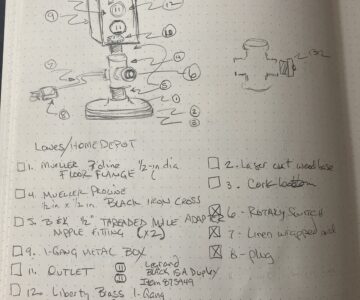 9
11
12
10
7
6
5
8
1
2
3
13
LOWES/HOMEDEPOT
1. MUELLER Proline 1/2-in dia
FLOOR FLANGE
4. MUELLER PROLINE
1/2 in x 1/2 in BLACK IRON CROSS
5. B&K 1/2" THREADED MALE ADAPTER
NIPPLE FITTING (x2)
9. 1-GANG METAL BOX
11. OUTLET
Legrand
Black 15A Duplex
Item 875949
12. Liberty Brass 1-Gang
2. Laser cut wood base
3. Cork bottom
6 - ROTARY SWITCH
7 - Linen wrapped cord
8 - plug